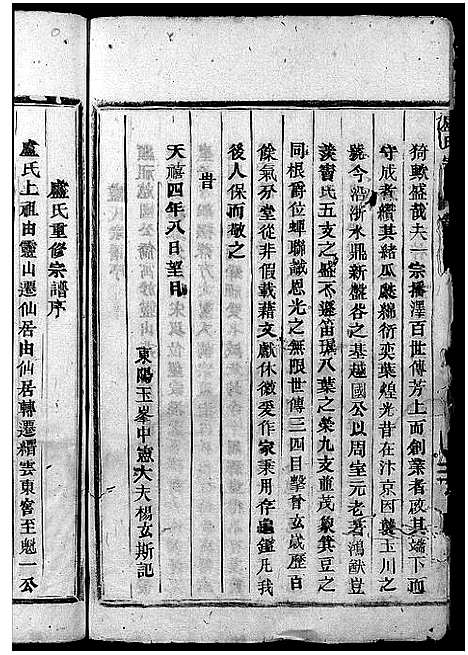 猗歟盛哉夫一宗播澤百世傳芳上而創業者啟其端下而
守成者纘其緒瓜瓞綿衍奕葉煌光昔在汴京因襲玉川之
號今沿浙水鼎新盤谷之基越國公以周室元老著鴻猷豈
羨竇氏五支之盛不遜笛琪八葉之榮九支並茂象箕豆之
同根爵位蟬聯誠恩光之無限世傳三四目擊曾玄歲歷百
餘氣分堂從非假載藉文獻休徵爰作家乘用存龜鑑凡我
後人保而敬之
旹
天禧四年八日望日
東陽玉峯中憲大夫楊玄斯記
盧氏重修宗譜序
盧氏上祖由靈山遷仙居由仙居轉遷縉雲東宮至魁一公